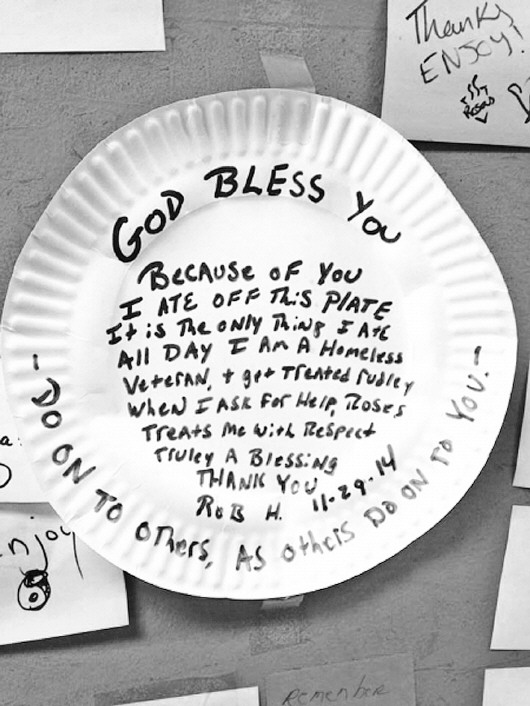 Thanks
ENJOY!
Roses
GOD BLESS YOU
BECAUSE OF YOU
I ATE OFF THIS PLATE
It is The only Thing I Ate
All DAY I AM A Homeless
Veteran, + get Treated rudley
When I ASK For Help, Roses
Treats Me with Respect
Truley A Blessing
THANK YOU
ROB H. 11-29-14
-DO ON TO OTHERS, AS OTHERS DO ON TO YOU.-
a:
enjoy
Remember